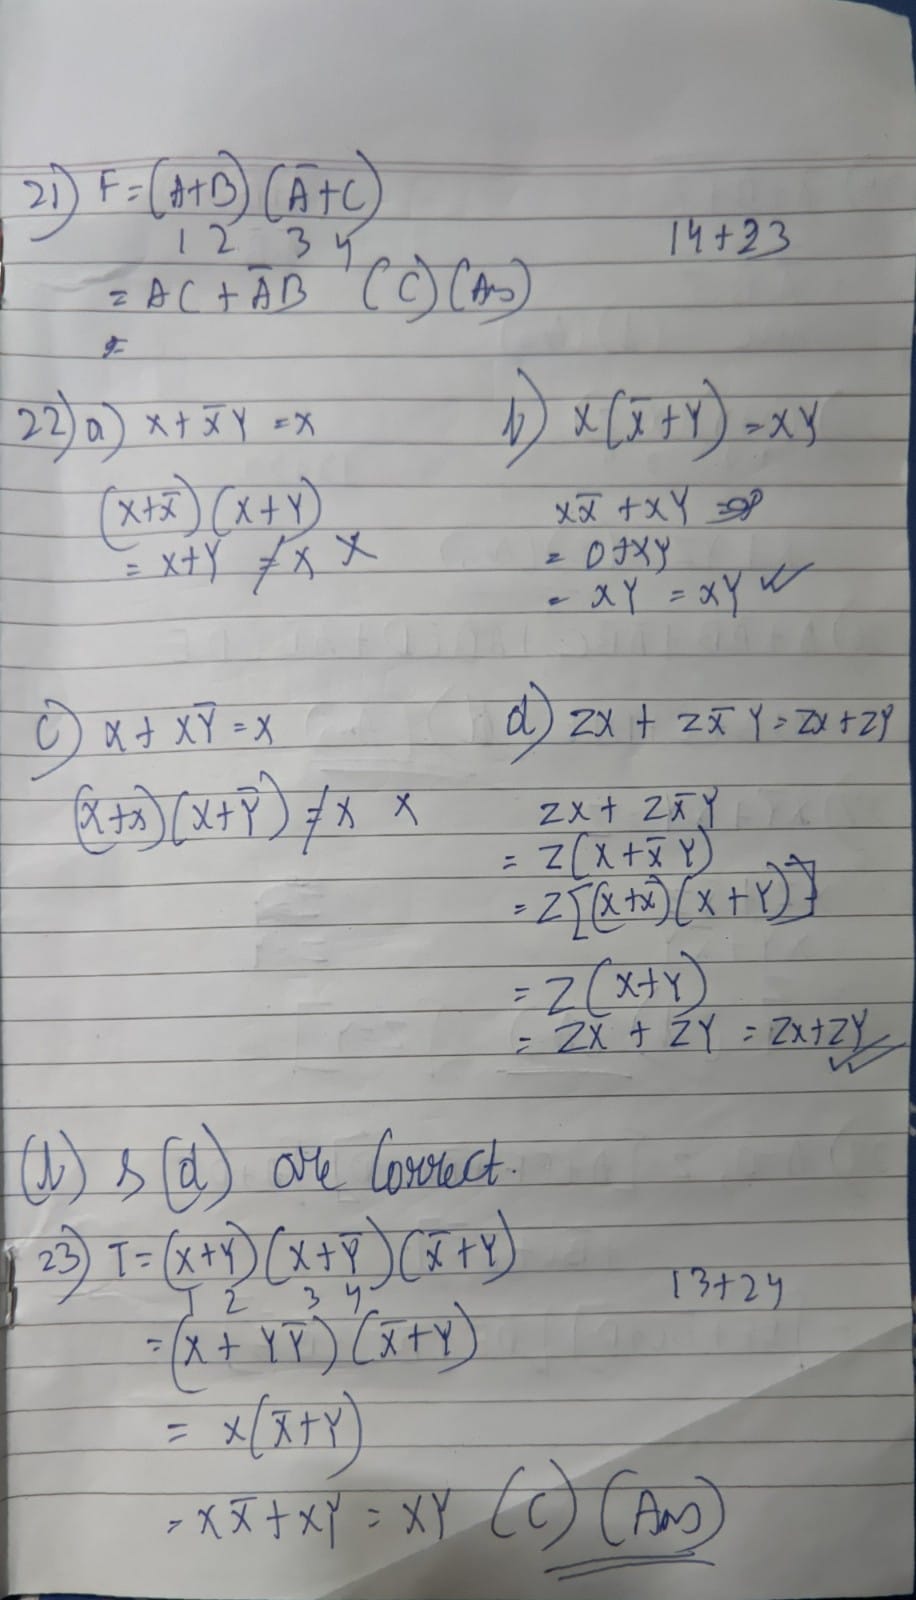 21) F = (A+B) (A̅+C)
1 2 3 4
14+23
= AC + A̅B (C) (Ans)
=
22) a) X + X̅Y = X
(X+X̅) (X+Y)
= X+Y ≠ X ✗
b) X(X̅+Y) = XY
XX̅ + XY
= 0+XY
= XY = XY ✓
c) X + XY̅ = X
(X+X) (X+Y̅) ≠ X ✗
d) ZX + ZX̅Y = ZX+ZY
ZX + ZX̅Y
= Z(X+X̅Y)
= Z[(X+X̅)(X+Y)]
= Z(X+Y)
= ZX + ZY = ZX+ZY ✓
(b) & (d) are Correct.
23) T = (X+Y) (X+Y̅) (X̅+Y)
1 2 3 4
13+24
= (X + YY̅) (X̅+Y)
= X(X̅+Y)
= XX̅+XY = XY (C) (Ans)